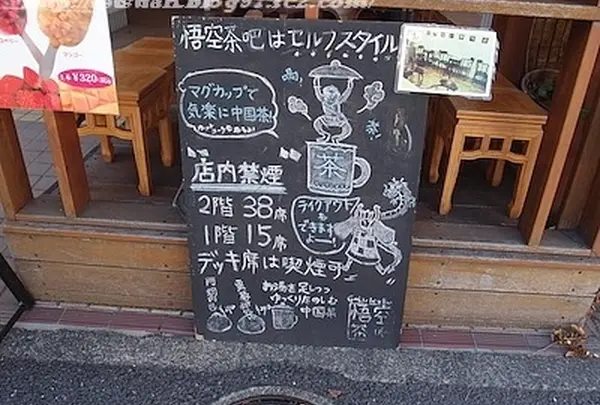 悟空茶吧はセルフスタイル
マグカップで
気楽に中国茶!
茶
店内禁煙
2階 38席
1階 15席
テイクアウト
も
できます
よー!
デッキ席は喫煙可
お湯を足しつつ
ゆっくりたのしむ
中国茶
悟空
茶
マンゴー
¥320